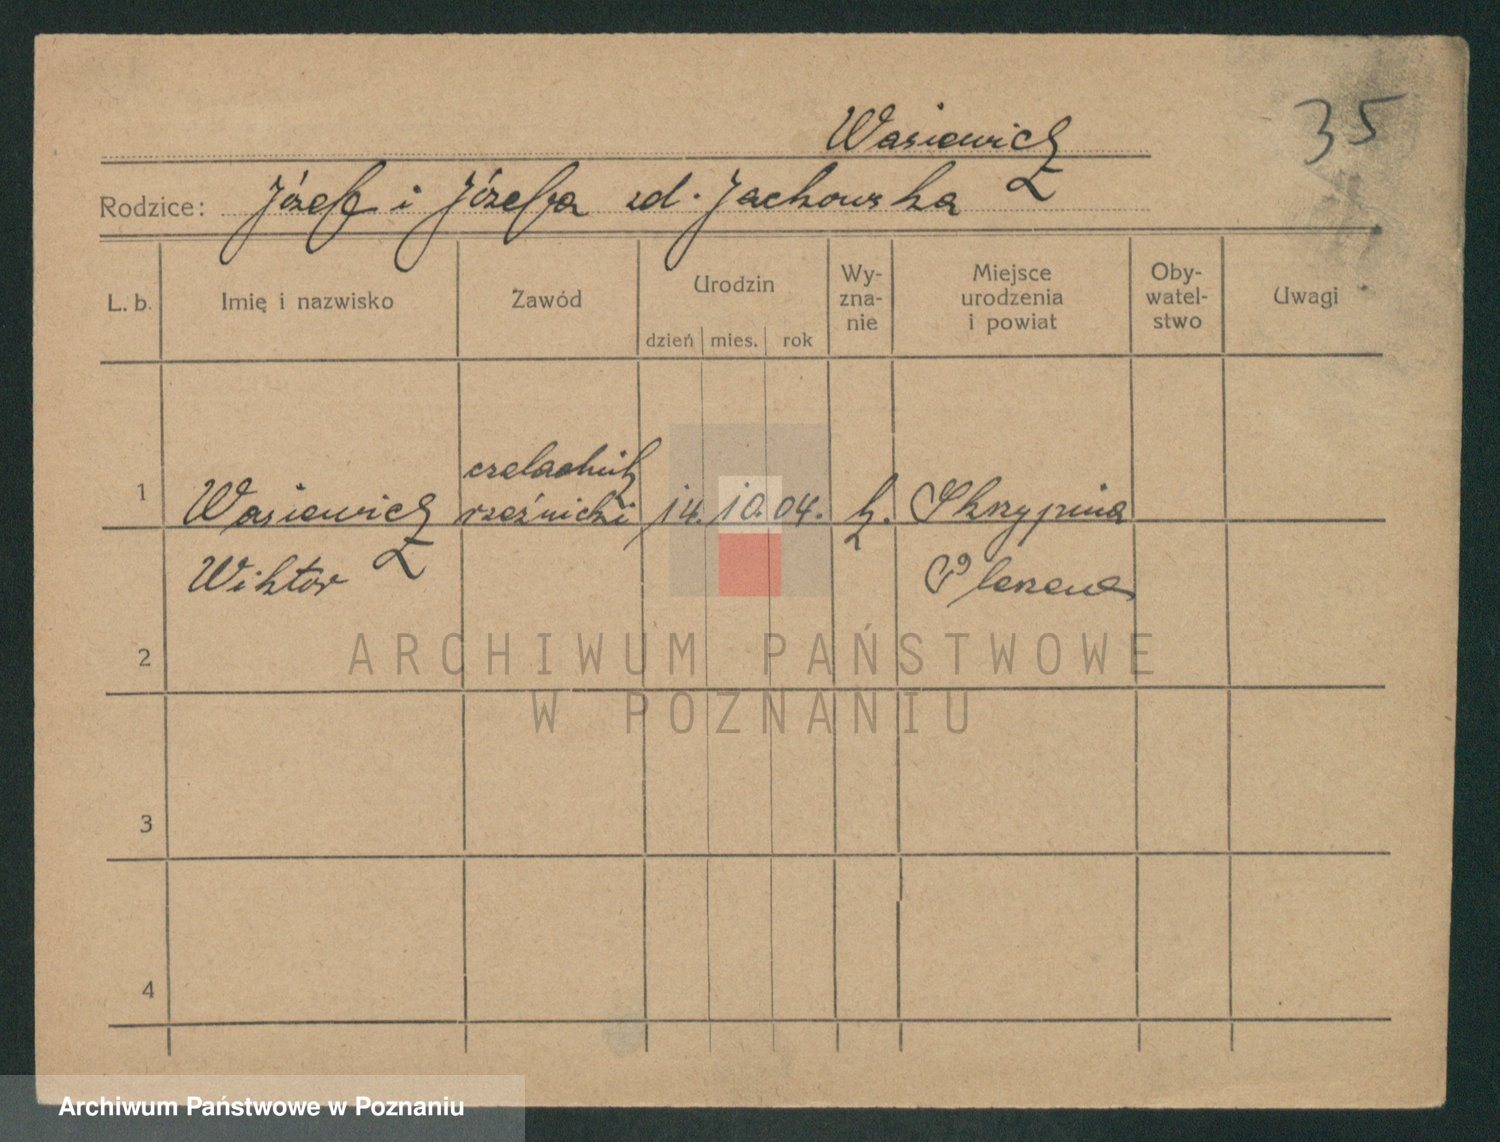 35
Wasiewicz
Rodzice: Józef i Józefa zd. Jachowska
L. b. Imię i nazwisko Zawód Urodzin dzień mies. rok Wy-zna-nie Miejsce urodzenia i powiat Oby-watel-stwo Uwagi
czeladnik
1 Wasiewicz rzeźnicki 14. 10. 04. k. Skrzypnia
Wiktor Pleszew
2
ARCHIWUM PAŃSTWOWE
W POZNANIU
3
4
Archiwum Państwowe w Poznaniu